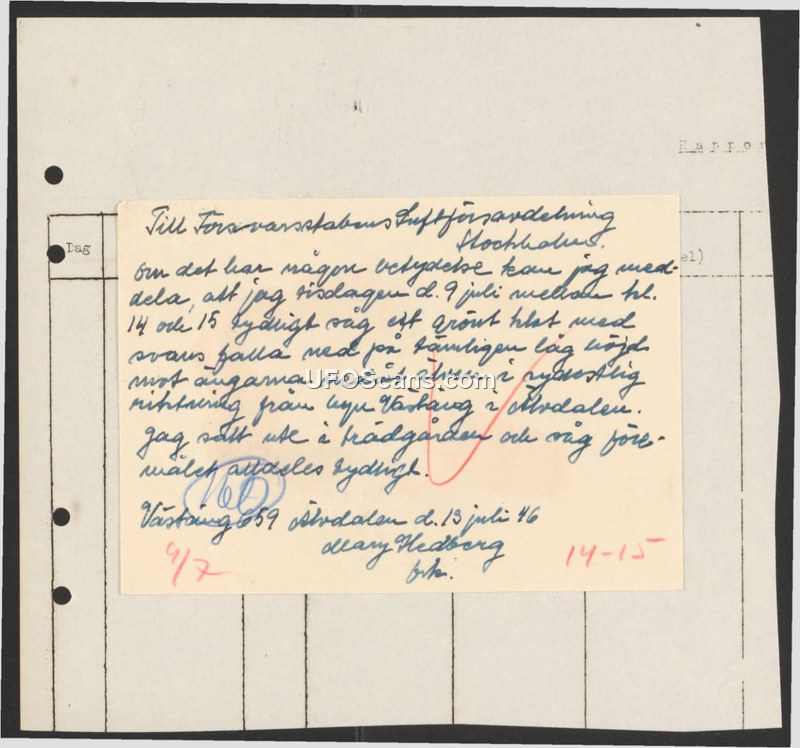 Rappor
Dag
el)
Till Försvarsstabens Luftförsvardelning
Stockholm.
om det har någon betydelse kan jag med-
dela, att jag tisdagen d. 9 juli mellan kl.
14 och 15 tydligt såg ett grönt klot med
svans falla ned på tämligen låg höjd
mot ängarna älven i sydostlig
riktning från byn Västäng i Älvdalen.
Jag satt ute i trädgården och såg före-
målet alldeles tydligt.
Västäng 659 Älvdalen d. 13 juli 46
Mary Hedberg
frk.
9/7
14-15
UFOScans.com